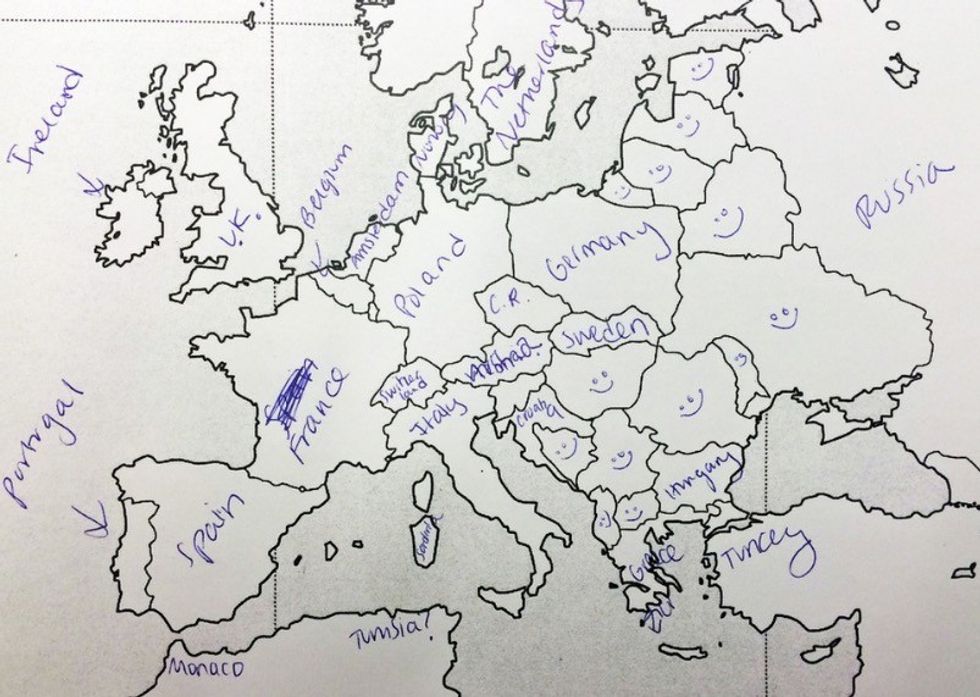 Ireland
The
Netherlands
Norway
Belgium
Amsterdam
Russia
U.K.
Poland
Germany
C.R.
Sweden
Switzer
land
France
Italy
Croatia
Portugal
Spain
Hungary
Sardinia
Greece
Turkey
Tunisia?
Monaco